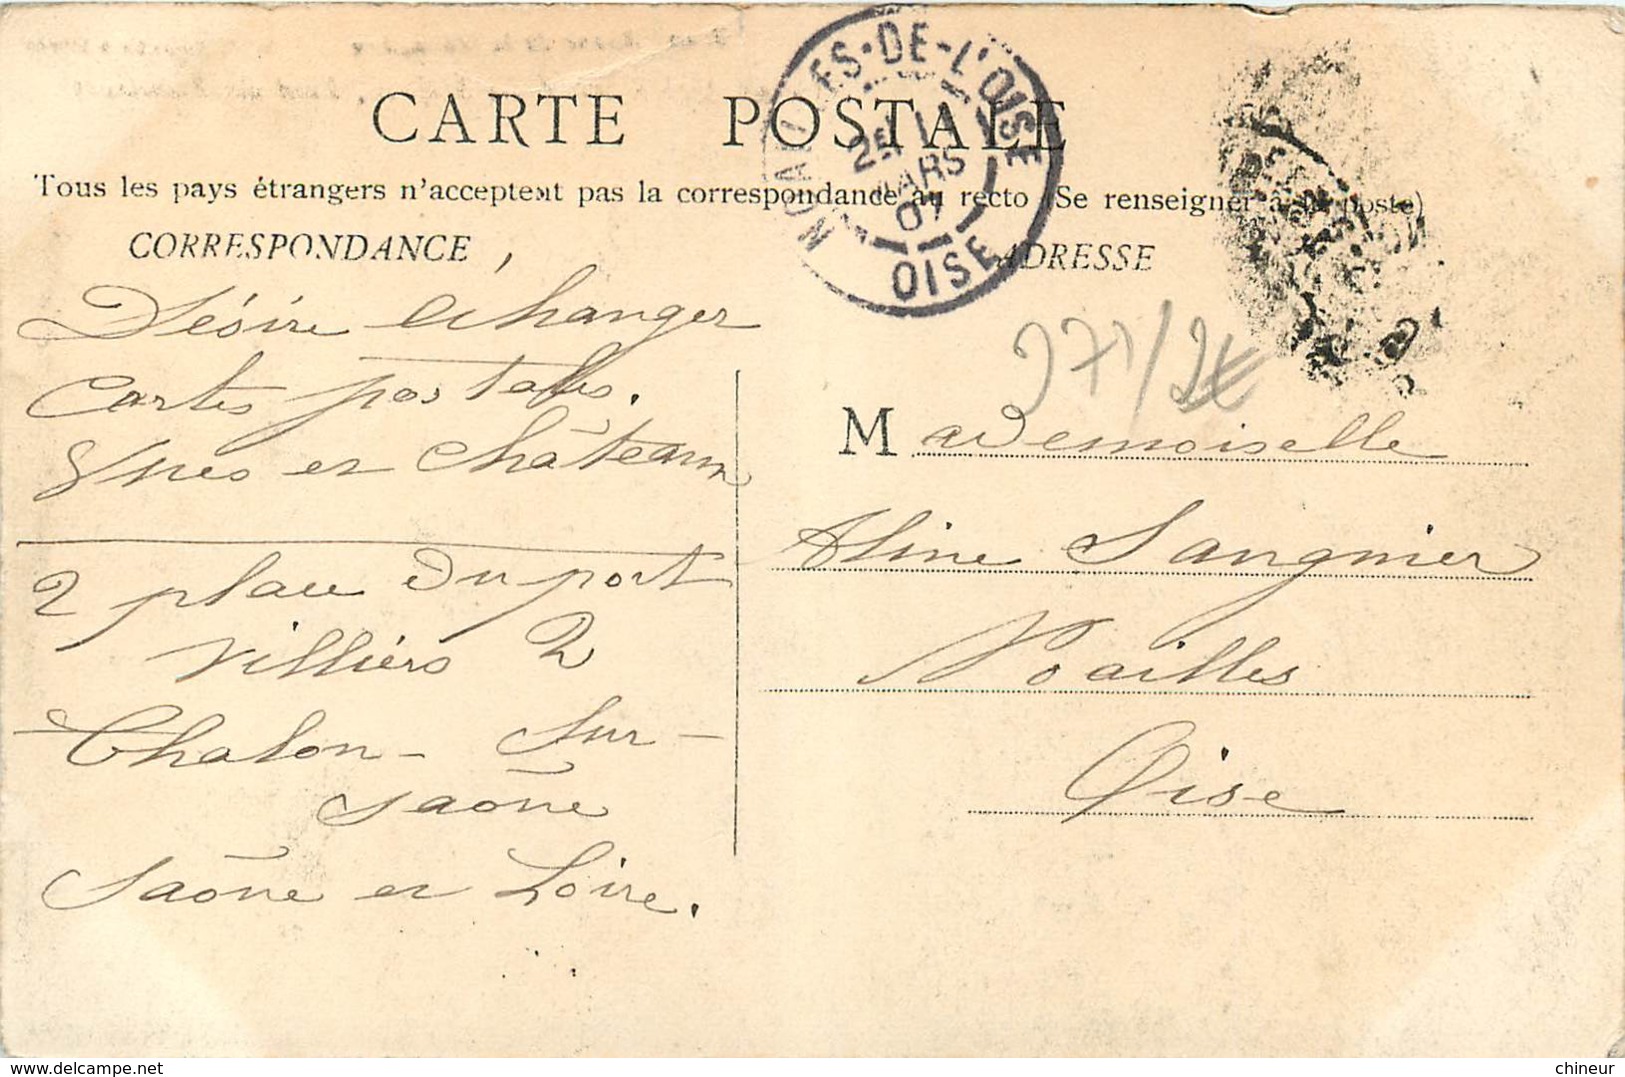 CARTE POSTALE
Tous les pays étrangers n'acceptent pas la correspondance au recto (Se renseigner à la poste)
CORRESPONDANCE
ADRESSE
NOAILLES-DE-L'OISE
MARS
07
OISE
Désire echanger
cartes postales.
Vues et châteaux
2 place du port
villiers 2
Chalon-sur-
Saône
Saône et Loire.
371/2€
Mademoiselle
Aline Sangnier
Noailles
Oise
chineur